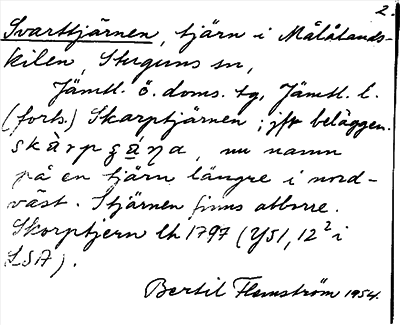 2.
Svarttjärnen, tjärn i Målåtands-
kilen, Stuguns sn,
Jämtl. ö. doms. tg, Jämtl. l.
(forts.) Skarptjärnen; jfr beläggen.
nu namn
på en tjärn längre i nord-
väst. Stjärnen finns abborre.
Skorptjern lk 1797 (Y51, 12² i
LSA).
Bertil Flemström 1954.